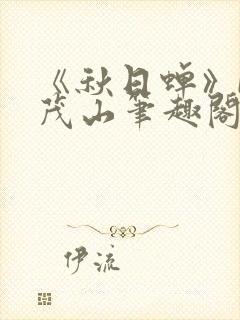 《秋日蝉》
茂山筆趣閣
伊流